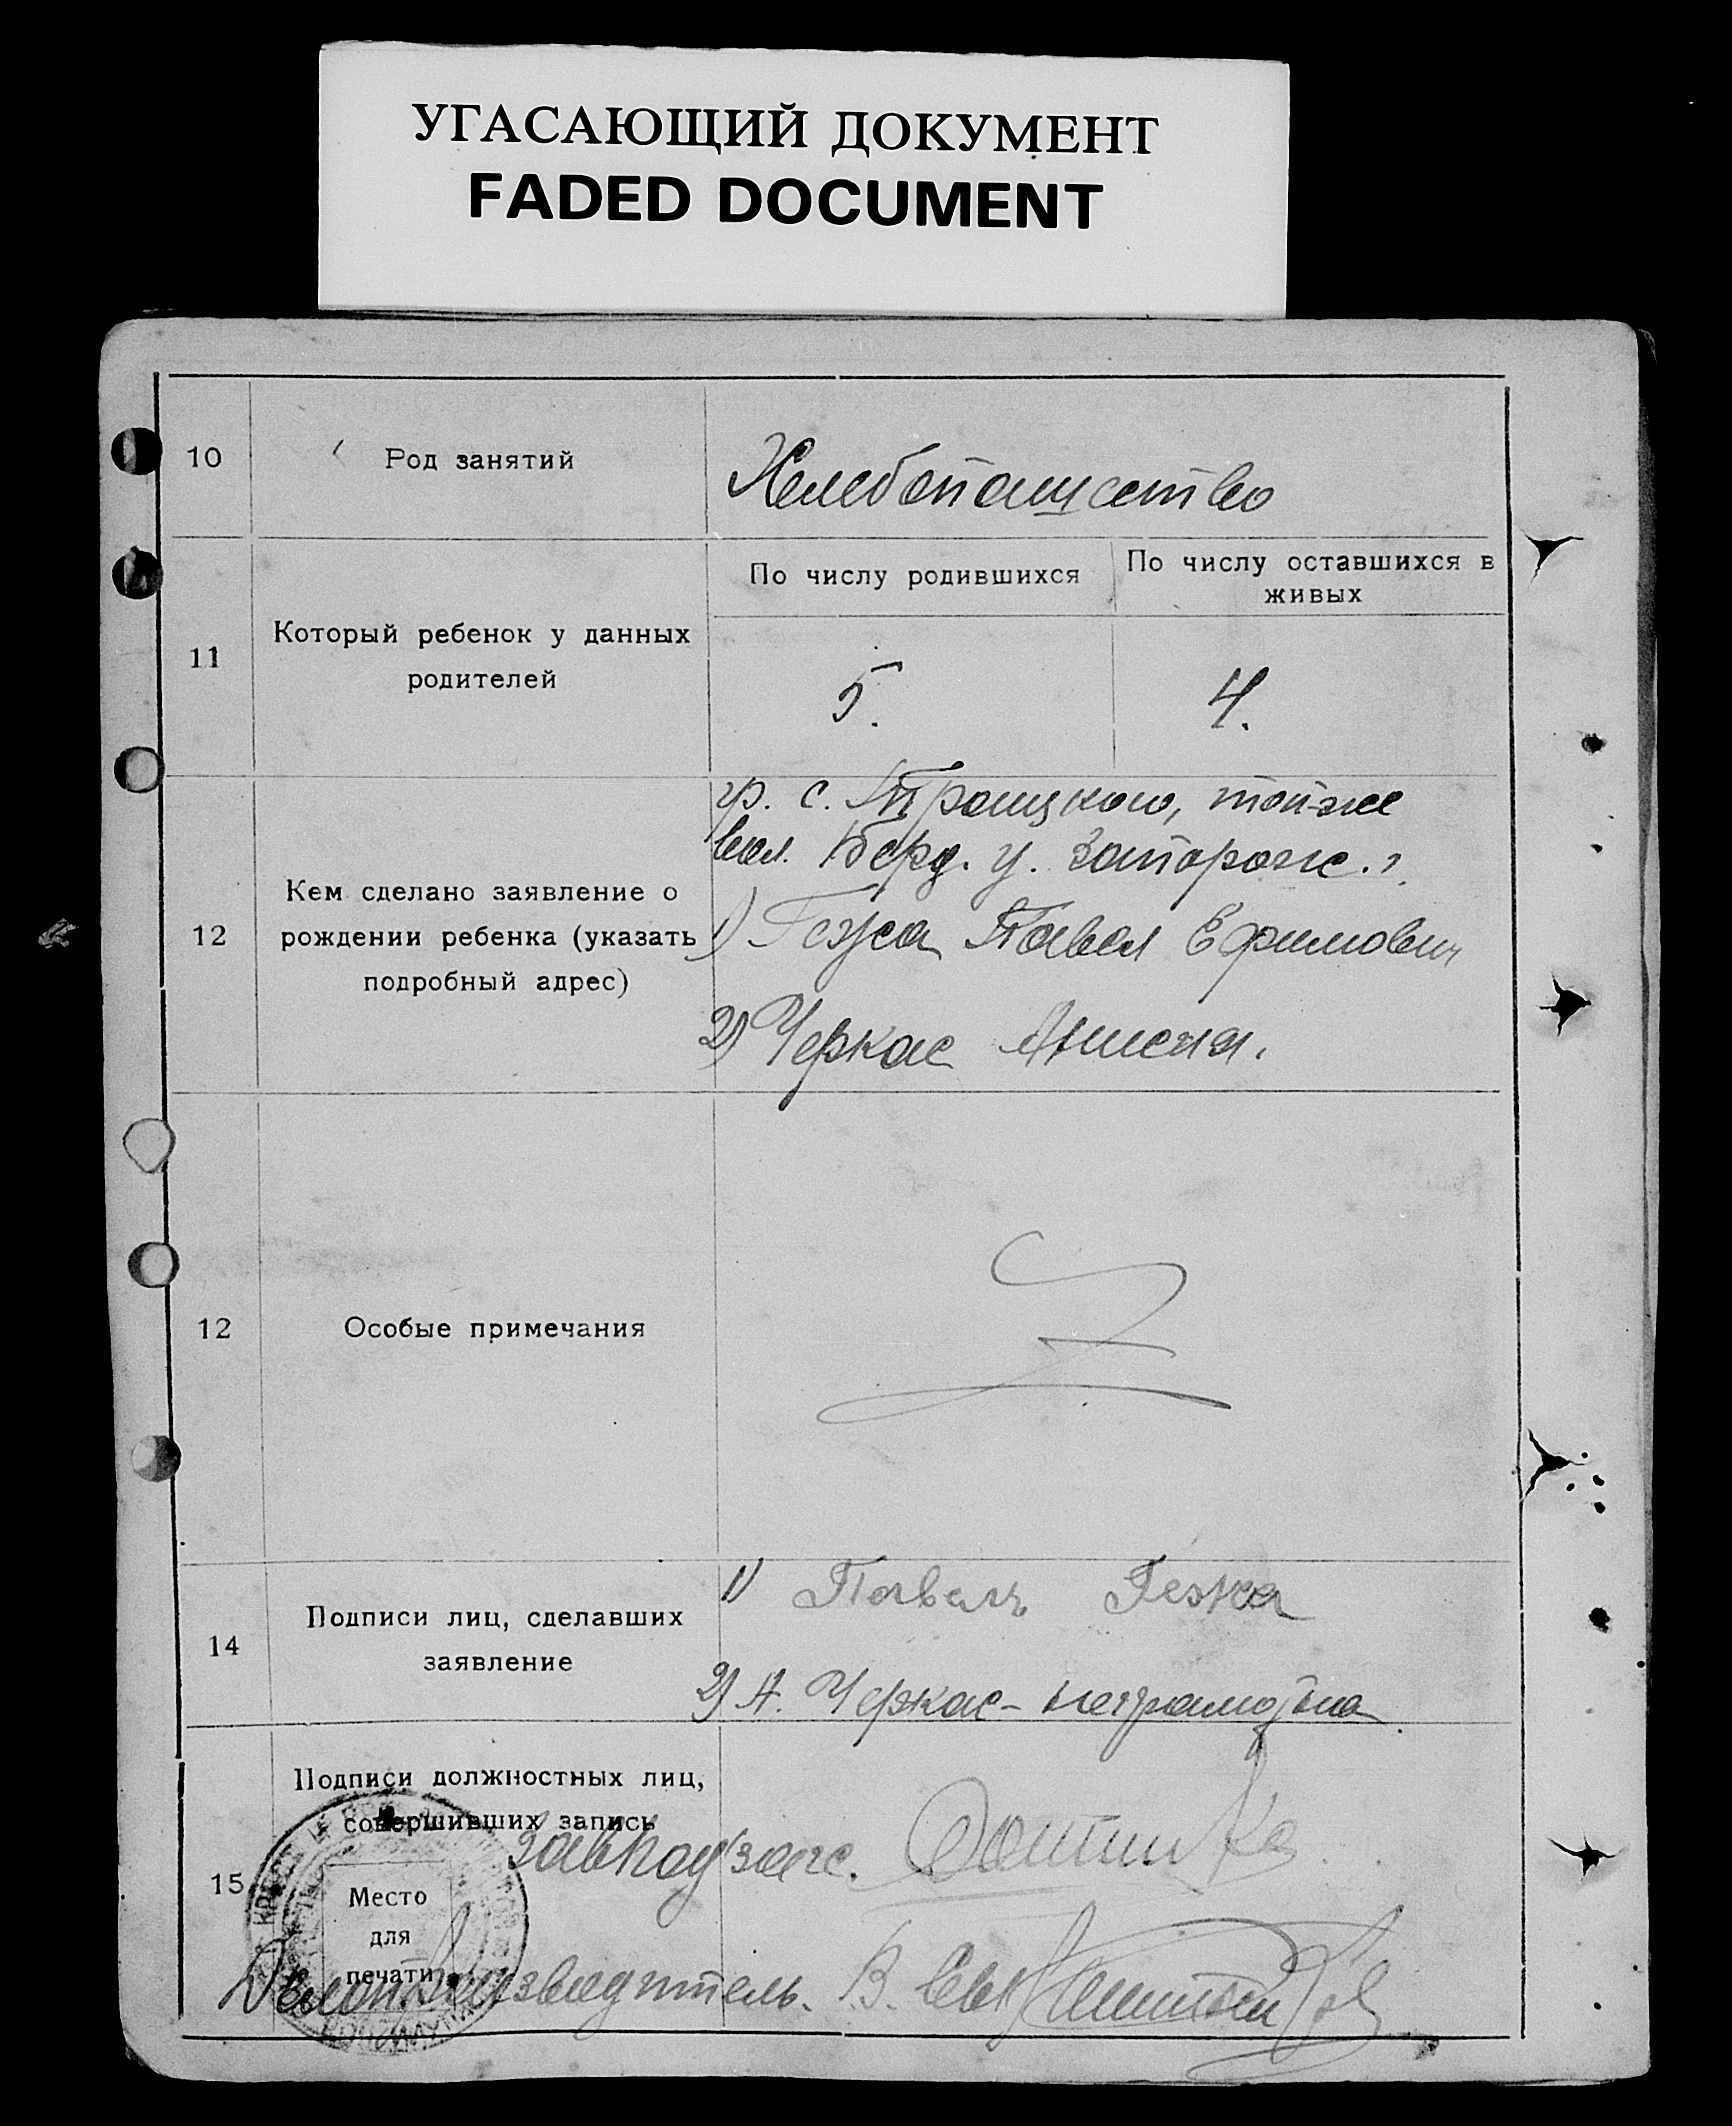 УГАСАЮЩИЙ ДОКУМЕНТ
FADED DOCUMENT
10
Род занятий
Хлебопашество
11
Который ребенок у данных
родителей
По числу родившихся
По числу оставшихся в
живых
5.
4.
12
Кем сделано заявление о
рождении ребенка (указать
подробный адрес)
гр. с. Троицкого, той-же
вол. Берд. у. Запорож. г.
1) Гезха Павел Ефимович
2) Черкас Анисия.
12
Особые примечания
14
Подписи лиц, сделавших
заявление
1) Павелъ
2) А. Черкас - неграмотна
15
Подписи должностных лиц,
совершивших запись
Завподзагс.
Место
для
печати
Делопроизводитель. В.